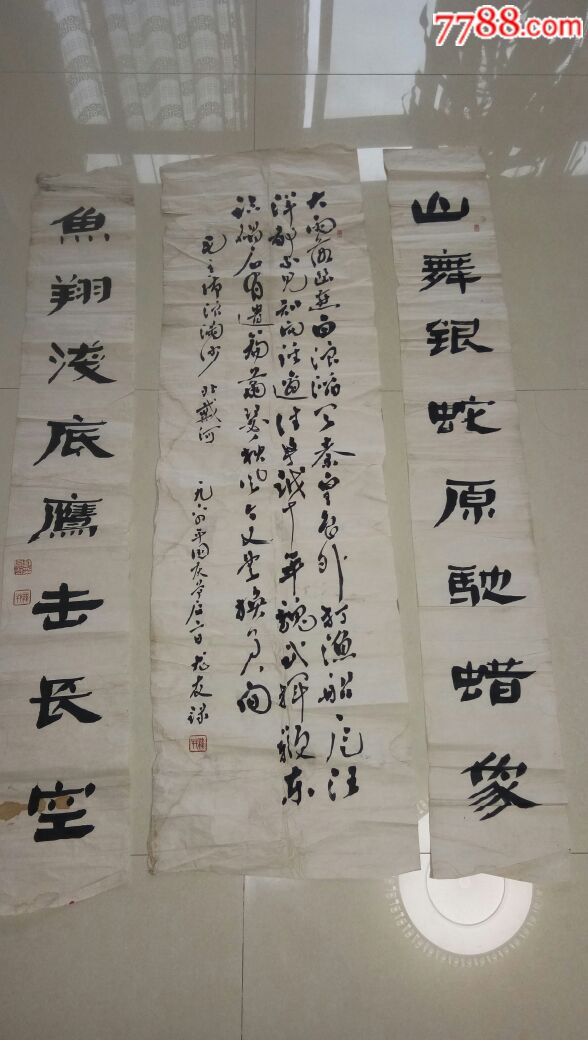 7788.com
山舞银蛇原馳蜡象
大雨落幽燕白浪滔天秦皇岛外打漁船一片汪
洋都不见知向谁邊往事越千年魏武挥鞭东
临碣石有遗篇萧瑟秋风今又是换了人间
毛主席浪淘沙 北戴河 一九六四年国庆节后二日 录
魚翔浅底鷹击长空